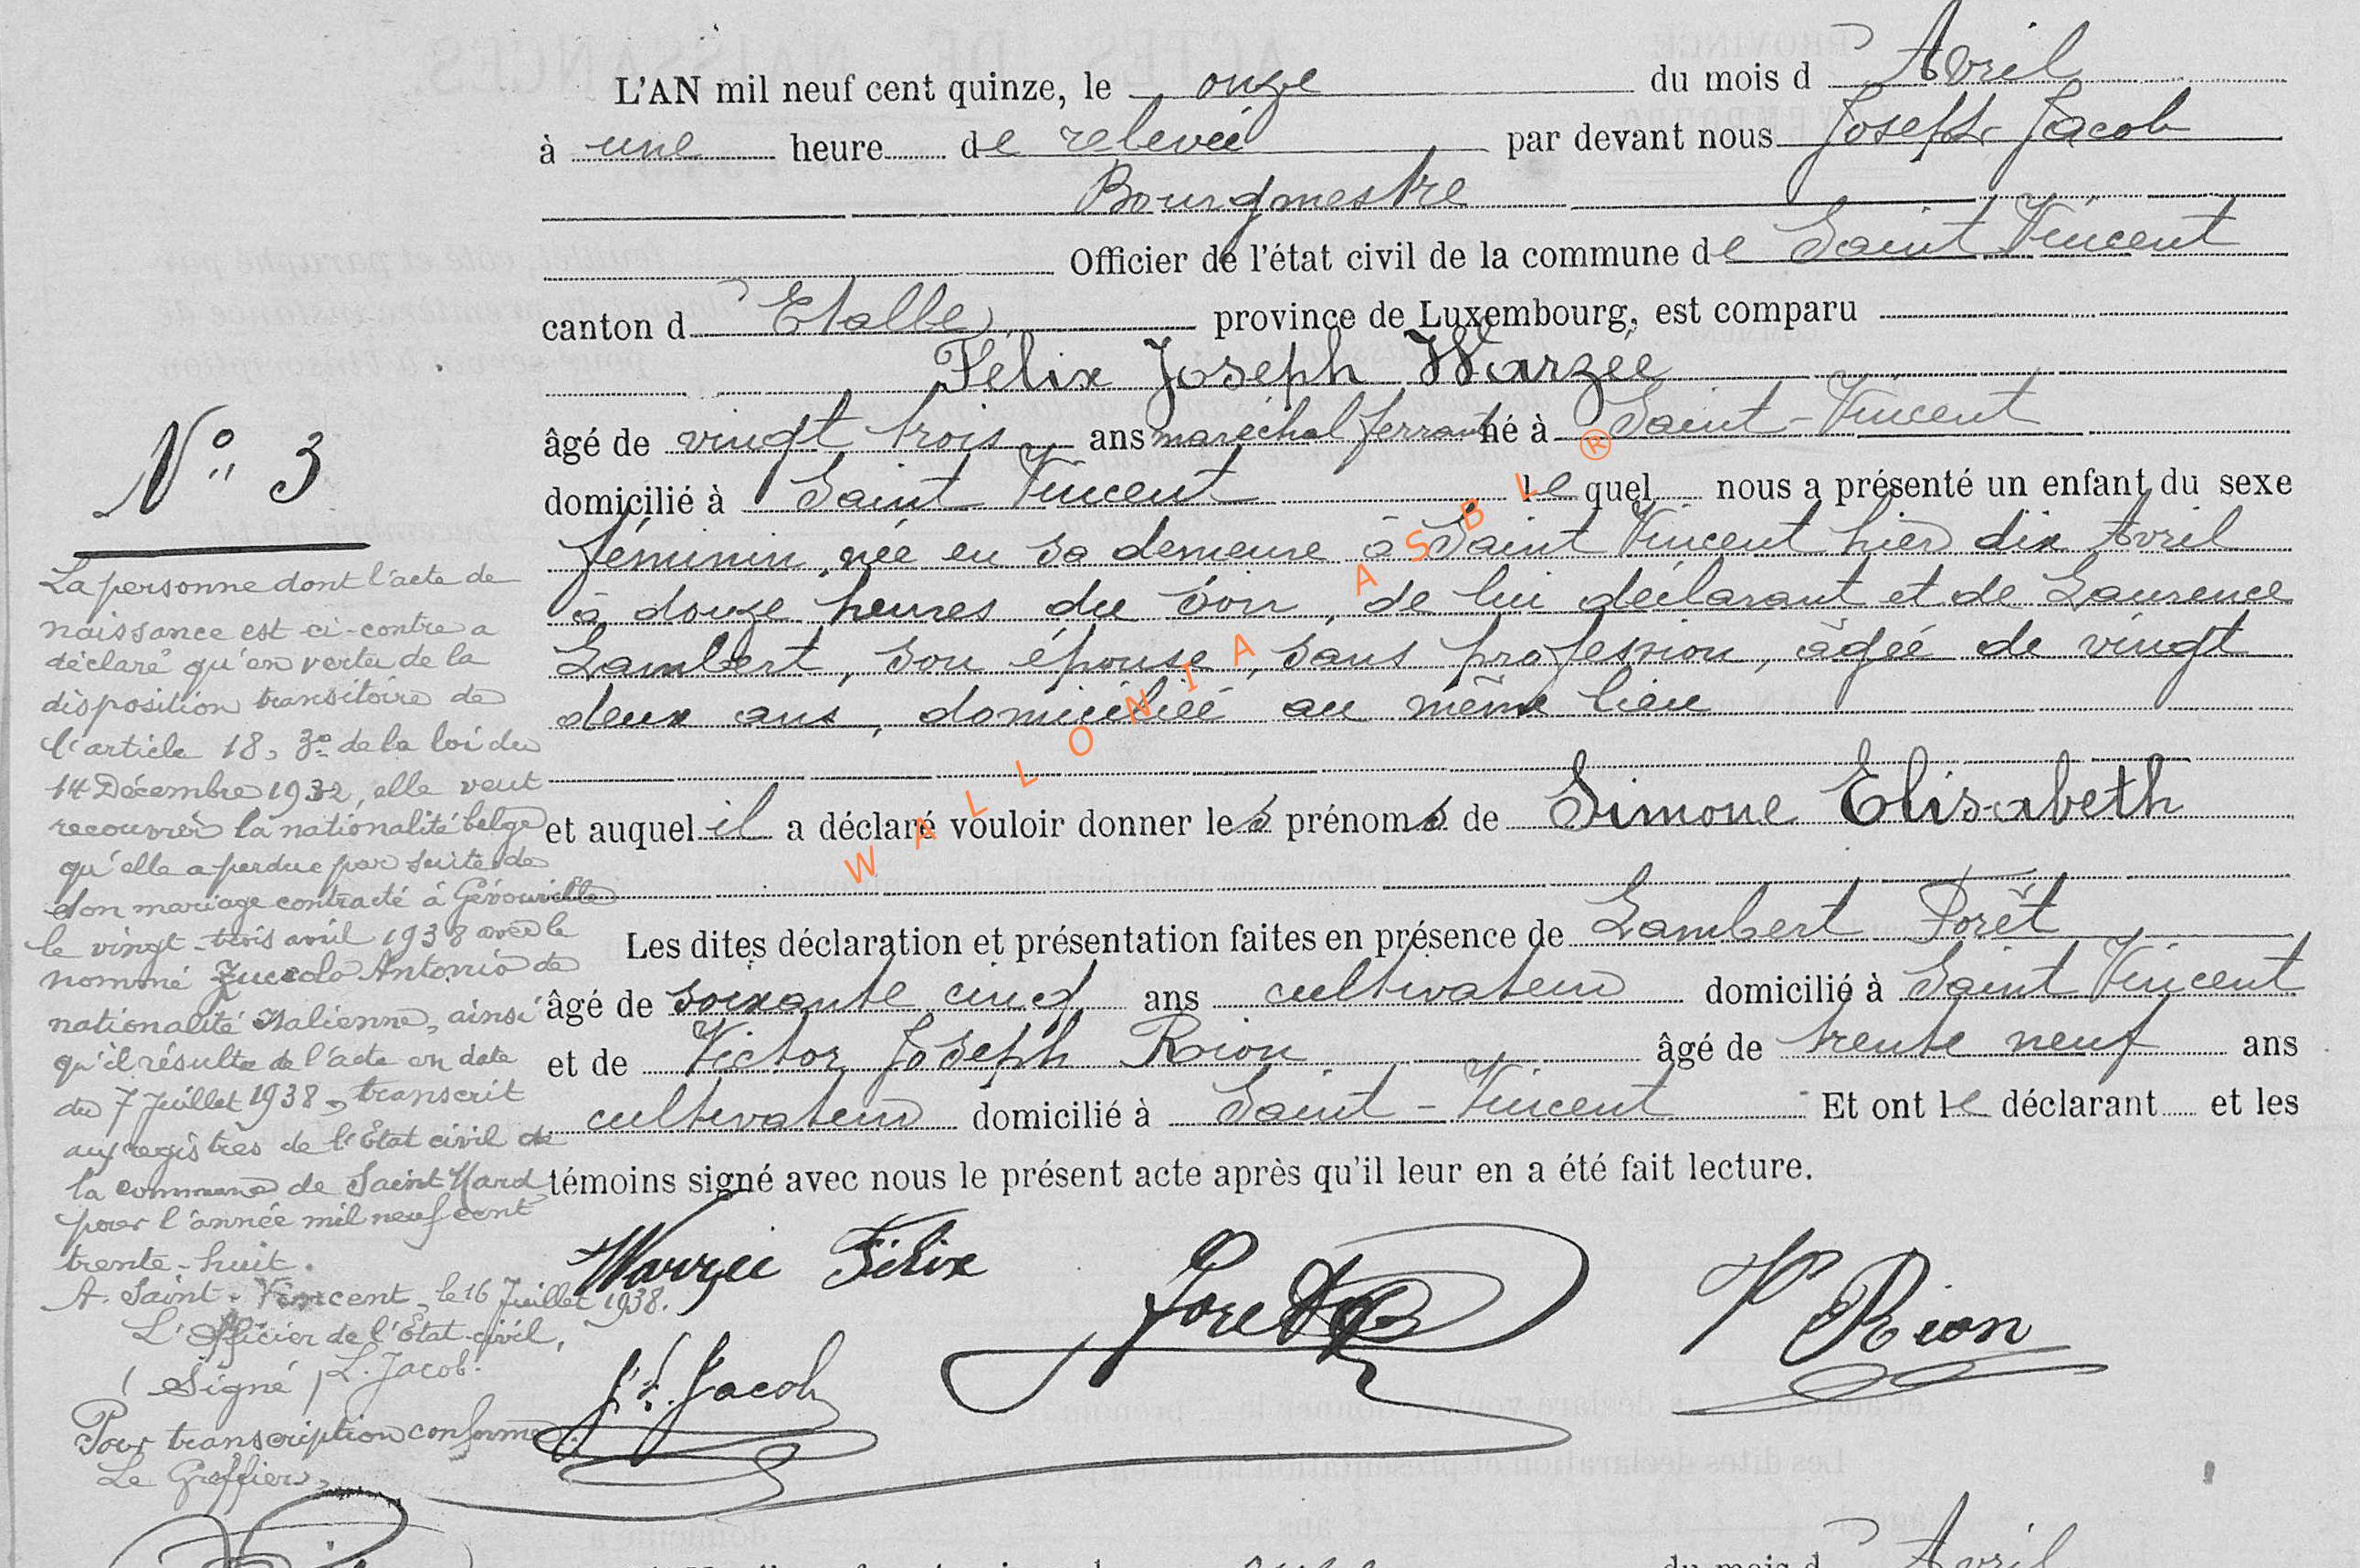 L'AN mil neuf cent quinze, le onze du mois d'Avril
à une heure de relevée par devant nous Joseph Jacob
Bourgmestre
Officier de l'état civil de la commune de Saint Vincent
canton d'Etalle, province de Luxembourg, est comparu
Félix Joseph Warzée
âgé de vingt trois ans maréchal ferrant né à Saint-Vincent
domicilié à Saint Vincent lequel nous a présenté un enfant du sexe
féminin, née en sa demeure à Saint Vincent hier dix Avril
à douze heures du soir, de lui déclarant et de Laurence
Lambert, son épouse, sans profession, âgée de vingt
deux ans, domiciliée au même lieu
et auquel il a déclaré vouloir donner les prénoms de Simone Elisabeth
Les dites déclaration et présentation faites en présence de Lambert Poret
âgé de soixante cinq ans cultivateur domicilié à Saint Vincent
et de Victor Joseph Rion âgé de trente neuf ans
cultivateur domicilié à Saint-Vincent Et ont le déclarant et les
témoins signé avec nous le présent acte après qu'il leur en a été fait lecture.
Warzée Félix
J. Jacob
V Rion
N° 3
La personne dont l'acte de
naissance est ci-contre a
déclaré qu'en vertu de la
disposition transitoire de
l'article 18, 3° de la loi du
14 Décembre 1932, elle veut
recouvrer la nationalité belge
qu'elle a perdue par suite de
son mariage contracté à Gérouville
le vingt-trois avril 1938 avec le
nommé Zuccolo Antonio de
nationalité Italienne, ainsi
qu'il résulte de l'acte en date
du 7 Juillet 1938, transcrit
aux registres de l'Etat civil de
la commune de Saint Mard
pour l'année mil neuf cent
trente-huit.
A Saint-Vincent, le 16 Juillet 1938.
L'Officier de l'Etat-civil,
(Signé) L. Jacob.
Pour transcription conforme.
Le Greffier,
WALLONIA ASBL ®
du mois d'Avril